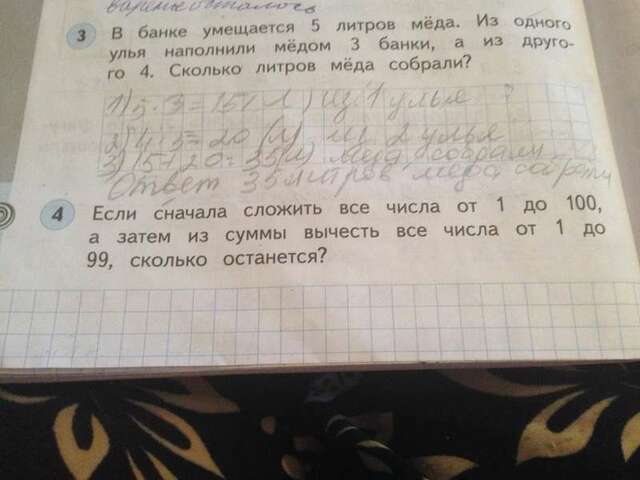 осталось
3 В банке умещается 5 литров мёда. Из одного
улья наполнили мёдом 3 банки, а из друго-
го 4. Сколько литров мёда собрали?
1) 5·3=15(л) из 1 улья
2) 4·5=20(л) из 2 улья
3) 15+20=35(л) мёда собрали
Ответ 35 литров мёда
4 Если сначала сложить все числа от 1 до 100,
а затем из суммы вычесть все числа от 1 до
99, сколько останется?